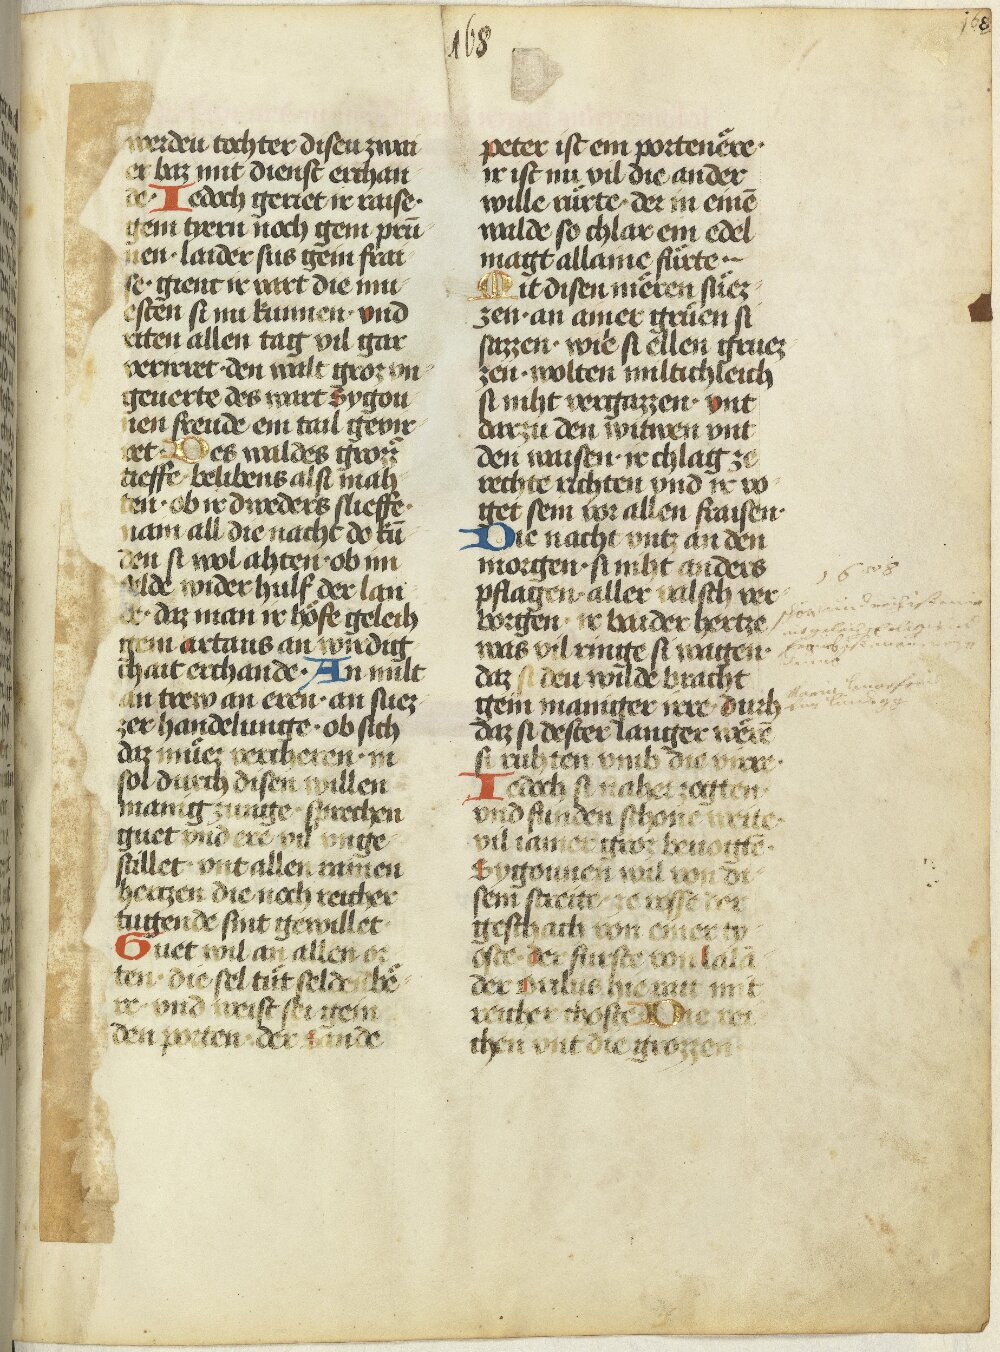 168
168
werden tochter disen zwai
er baz mit dienst erchan
de· Iedoch geriet ir raise·
gein trern noch gein prů
nen· laider sus gein frai
se· gient ir vart die mu
esten si nu kunnen· vnd
riten allen tag vil gar
verirret· den walt groz vn
geuerte des wart Sygou
nen freude ein tail gevir
ret· Des waldes grozz
tieffe· belibens alsi mah
ten· ob ir dweders slieffe·
nam all die nacht do kū
den si wol ahten· ob im
selde wider hulf der lan
de· daz man ir hôfe geleich
gein artaus an wirdig
chait erchande· An milt
an trew an eren· an suez
zer handelunge· ob sich
daz můez vercheren· in
sol durch disen willen
manig zunge· sprechen
guet vnd ere vil vnge
stillet· vnt allen rainen
hertzen die noch reicher
tugende sint gewillet·
Guet wil an allen or
ten· die sel tůt selden bë
re· vnd weist sei gein
den porten· der sande
peter ist ein portenëre·
ir ist nu vil die ander
wille rürte· der in einē
walde so chlar ein edel
magt allaine fürte·
Mit disen mëren süez
zen· an ainer grüen si
sazzen· wie si ellen gruez
zen· wolten miltichleich
si niht vergazzen· vnt
darzu den witwen vnt
den waisen· ir chlag ze
rechte richten vnd ir vo
get sein vor allen fraisen·
Die nacht vntz an den
morgen· si niht anders
pflagen· aller valsch ver
borgen· ir baider hertze
was vil ringe si wagen·
daz si den wilde bracht
gein maniger irre· durh
daz si dester langer wërē
si ruhten vmb die virre·
Iedoch si naher zogten·
vnd funden schone weite·
vil iamer groz bevogtē·
Sygounen wil von di
sem streite· ze orsse der
geschach von einer ty
oste· der furste von lalā
der Orilus hie rait mit
reicher choste· Die rei
chen vnt die grozzen